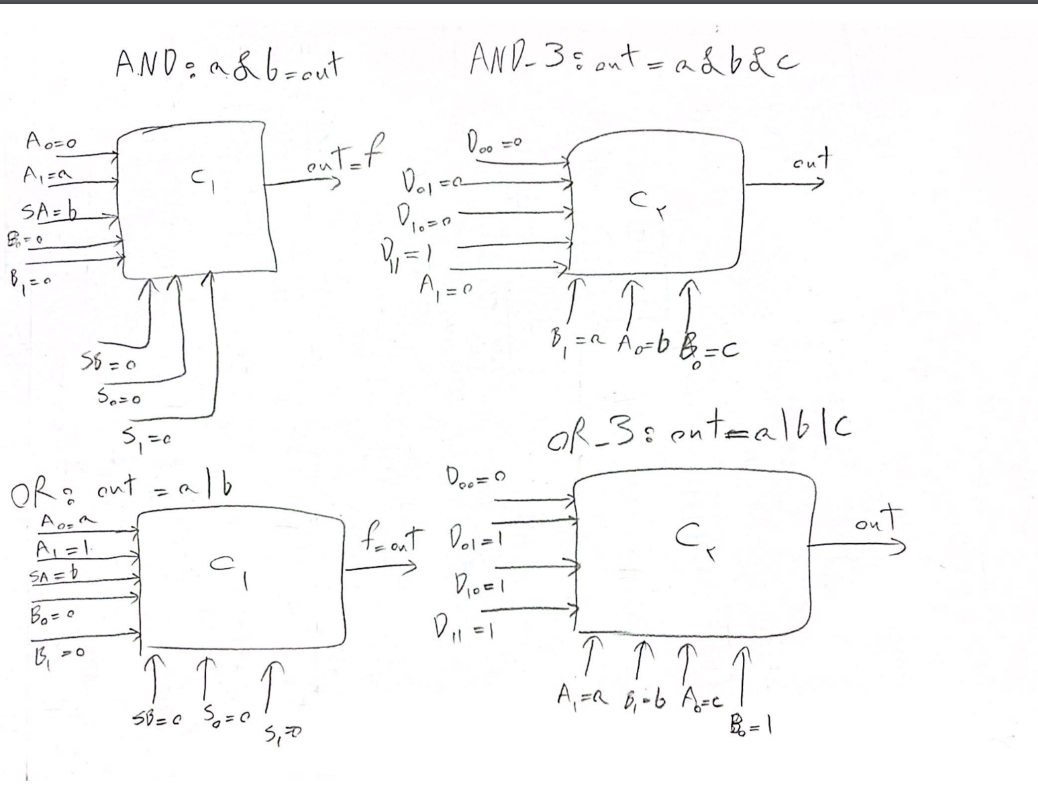 AND: a&b=out
A0=0
A1=a
SA=b
B0=0
B1=0
C1
out=f
SB=0
S0=0
S1=0
AND_3: out=a&b&c
D00=0
D01=0
D10=0
D11=1
A1=0
C٢
out
B1=a A0=b B0=c
OR: out=a|b
A0=a
A1=1
SA=b
B0=0
B1=0
C1
f=out
SB=0 S0=0 S1=0
OR_3: out=a|b|c
D00=0
D01=1
D10=1
D11=1
C٢
out
A1=a B1=b A0=c B0=1